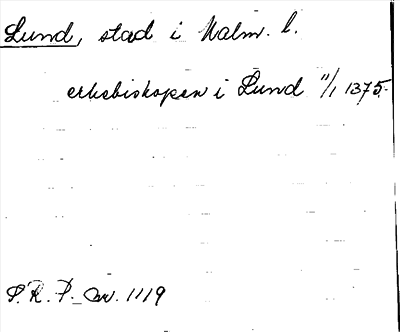 Lund, stad i Malm. l.
erkebiskopen i Lund 11/1 1375.
S.R.P. Or. 1119